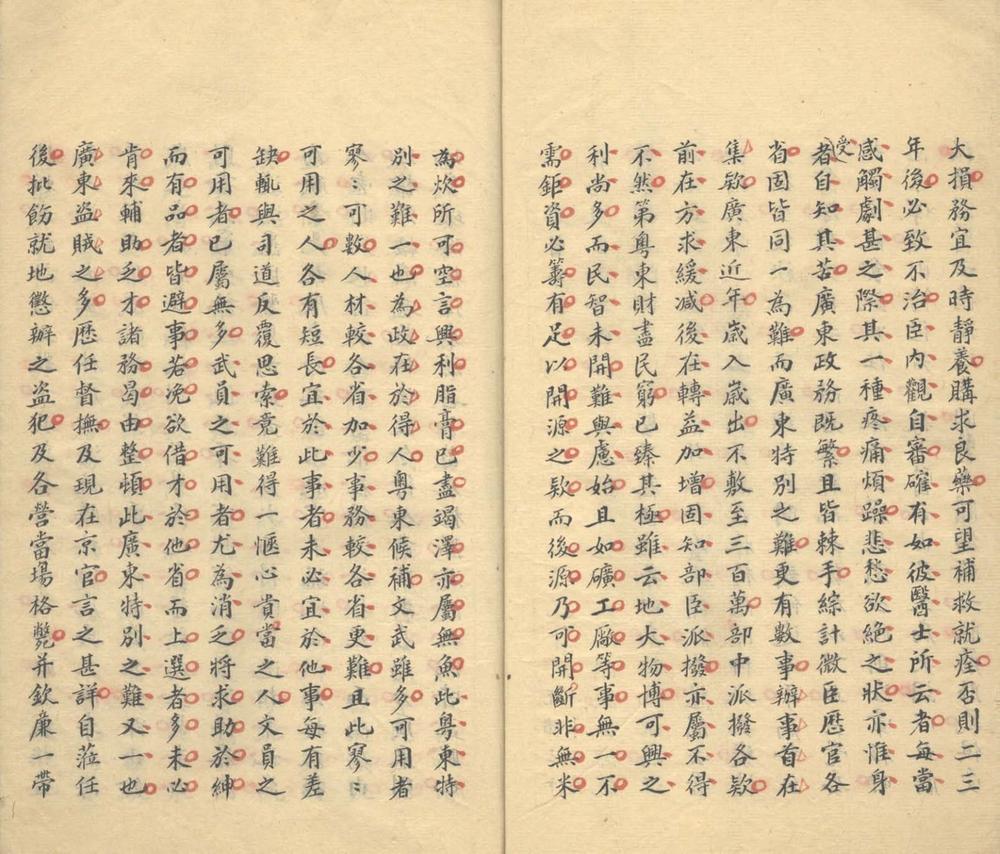 大損務宜及時靜養購求良藥可望補救就痊否則二三
年後必致不治臣內觀自審確有如彼醫士所云者每當
感觸劇甚之際其一種疼痛煩躁悲愁欲絕之狀亦惟身
受者自知其苦廣東政務既繁且皆棘手綜計微臣歷官各
省固皆同一為難而廣東特別之難更有數事辦事首在
集欵廣東近年歲入歲出不敷至三百萬部中派撥各欵
前在方求緩減後在轉益加增固知部臣派撥亦屬不得
不然第粵東財盡民窮已臻其極雖云地大物博可興之
利尚多而民智未開難與慮始且如礦工廠等事無一不
需鉅資必籌有足以開源之欵而後源乃可開斷非無米
為炊所可空言興利脂膏已盡竭澤亦屬無魚此粵東特
別之難一也為政在於得人粵東候補文武雖多可用者
寥〻可數人材較各省加少事務較各省更難且此寥〻
可用之人各有短長宜於此事者未必宜於他事每有差
缺輒與司道反覆思索竟難得一愜心貴當之人文員之
可用者已屬無多武員之可用者尤為消乏將求助於紳
而有品者皆避事若浼欲借才於他省而上選者多未必
肯來輔助乏才諸務曷由整頓此廣東特別之難又一也
廣東盜賊之多歷任督撫及現在京官言之甚詳自蒞任
後批飭就地懲辦之盜犯及各營當場格斃并欽廉一帶